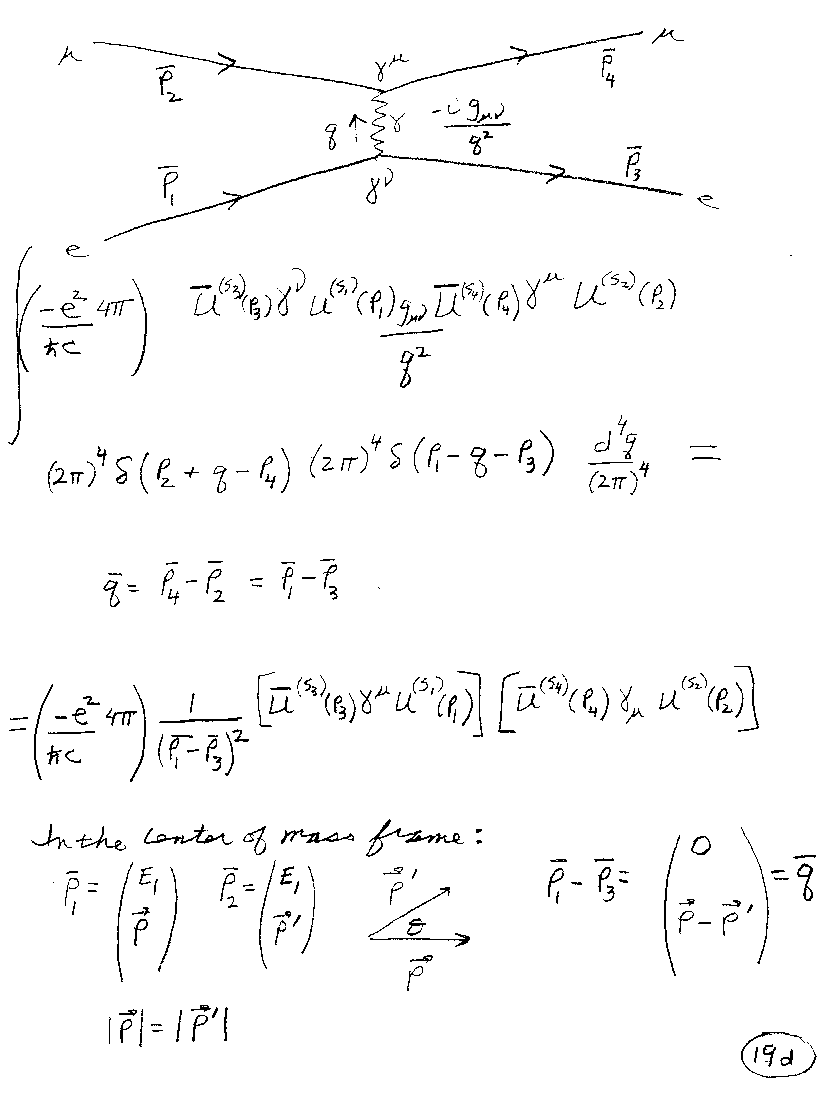 μ p̄₂ γ^μ p̄₄ μ
q ↑ γ -i g_μν / q²
e p̄₁ γ^ν p̄₃ e
∫ (-e²/ħc 4π) ū^(s₃)(p₃) γ^ν u^(s₁)(p₁) g_μν/q² ū^(s₄)(p₄) γ^μ u^(s₂)(p₂)
(2π)⁴ δ(p₂ + q - p₄) (2π)⁴ δ(p₁ - q - p₃) d⁴q/(2π)⁴ =
q̄ = p̄₄ - p̄₂ = p̄₁ - p̄₃
= (-e²/ħc 4π) 1/(p̄₁ - p̄₃)² [ū^(s₃)(p₃) γ^μ u^(s₁)(p₁)] [ū^(s₄)(p₄) γ_μ u^(s₂)(p₂)]
In the center of mass frame:
p̄₁ = (E₁ p⃗) p̄₂ = (E₁ p⃗′) p⃗′ θ p⃗ p̄₁ - p̄₃ = (0 p⃗ - p⃗′) = q̄
|p⃗| = |p⃗′|
19d